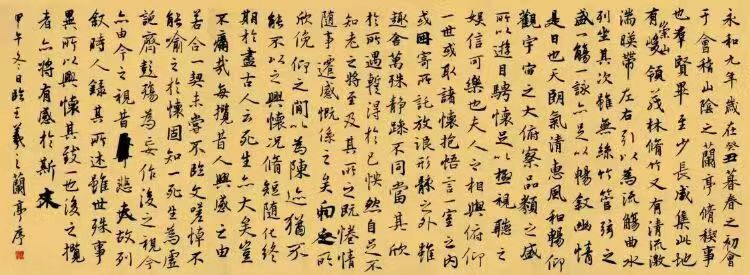 永和九年歲在癸丑暮春之初會
于會稽山陰之蘭亭脩稧事
也羣賢畢至少長咸集此地
有崇山峻領茂林脩竹又有清流激
湍暎帶左右引以為流觴曲水
列坐其次雖無絲竹管弦之
盛一觴一詠亦足以暢敘幽情
是日也天朗氣清惠風和暢仰
觀宇宙之大俯察品類之盛
所以遊目騁懷足以極視聽之
娛信可樂也夫人之相與俯仰
一世或取諸懷抱悟言一室之內
或因寄所託放浪形骸之外雖
趣舍萬殊靜躁不同當其欣
於所遇暫得於己怏然自足不
知老之將至及其所之既惓情
隨事遷感慨係之矣向之所
欣俛仰之間以為陳迹猶不
能不以之興懷況脩短隨化終
期於盡古人云死生亦大矣豈
不痛哉每攬昔人興感之由
若合一契未嘗不臨文嗟悼不
能喻之於懷固知一死生為虛
誕齊彭殤為妄作後之視今
亦由今之視昔悲夫故列
敘時人錄其所述雖世殊事
異所以興懷其致一也後之攬
者亦將有感於斯文
甲午冬日臨王羲之蘭亭序